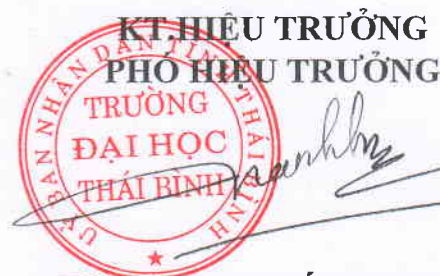 KT.HIỆU TRƯỞNG
PHÓ HIỆU TRƯỞNG
ỦY BAN NHÂN DÂN TỈNH THÁI BÌNH
TRƯỜNG
ĐẠI HỌC
THÁI BÌNH